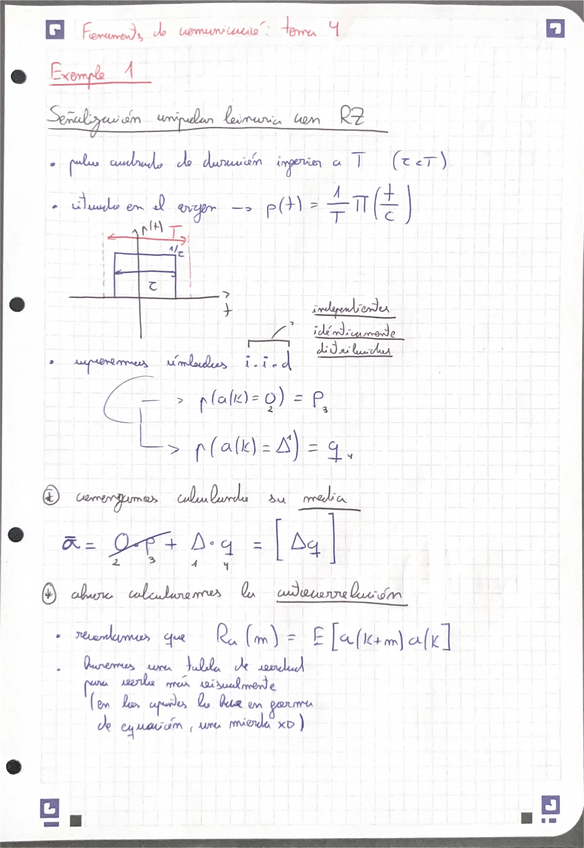 Fonaments de comunicació: tema 4
Exemple 1
Señalización unipolar binaria con RZ
• pulso cuadrado de duración inferior a T (τ<T)
• situado en el origen → p(t) = 1/T Π(t/τ)
p(t) T
1/τ
τ
t
independientes
idénticamente
distribuidos
• suponemos símbolos i.i.d
→ p(a(k)=0) = P
2 3
→ p(a(k)=Δ) = q
1 4
* comenzamos calculando su media
ā = 0·P + Δ·q = [Δq]
2 3 1 4
* ahora calcularemos la autocorrelación
• recordamos que Ra(m) = E[a(k+m)a(k]
• haremos una tabla de verdad
para verlo más visualmente
(en los apuntes lo hace en forma
de equación, una mierda xD)